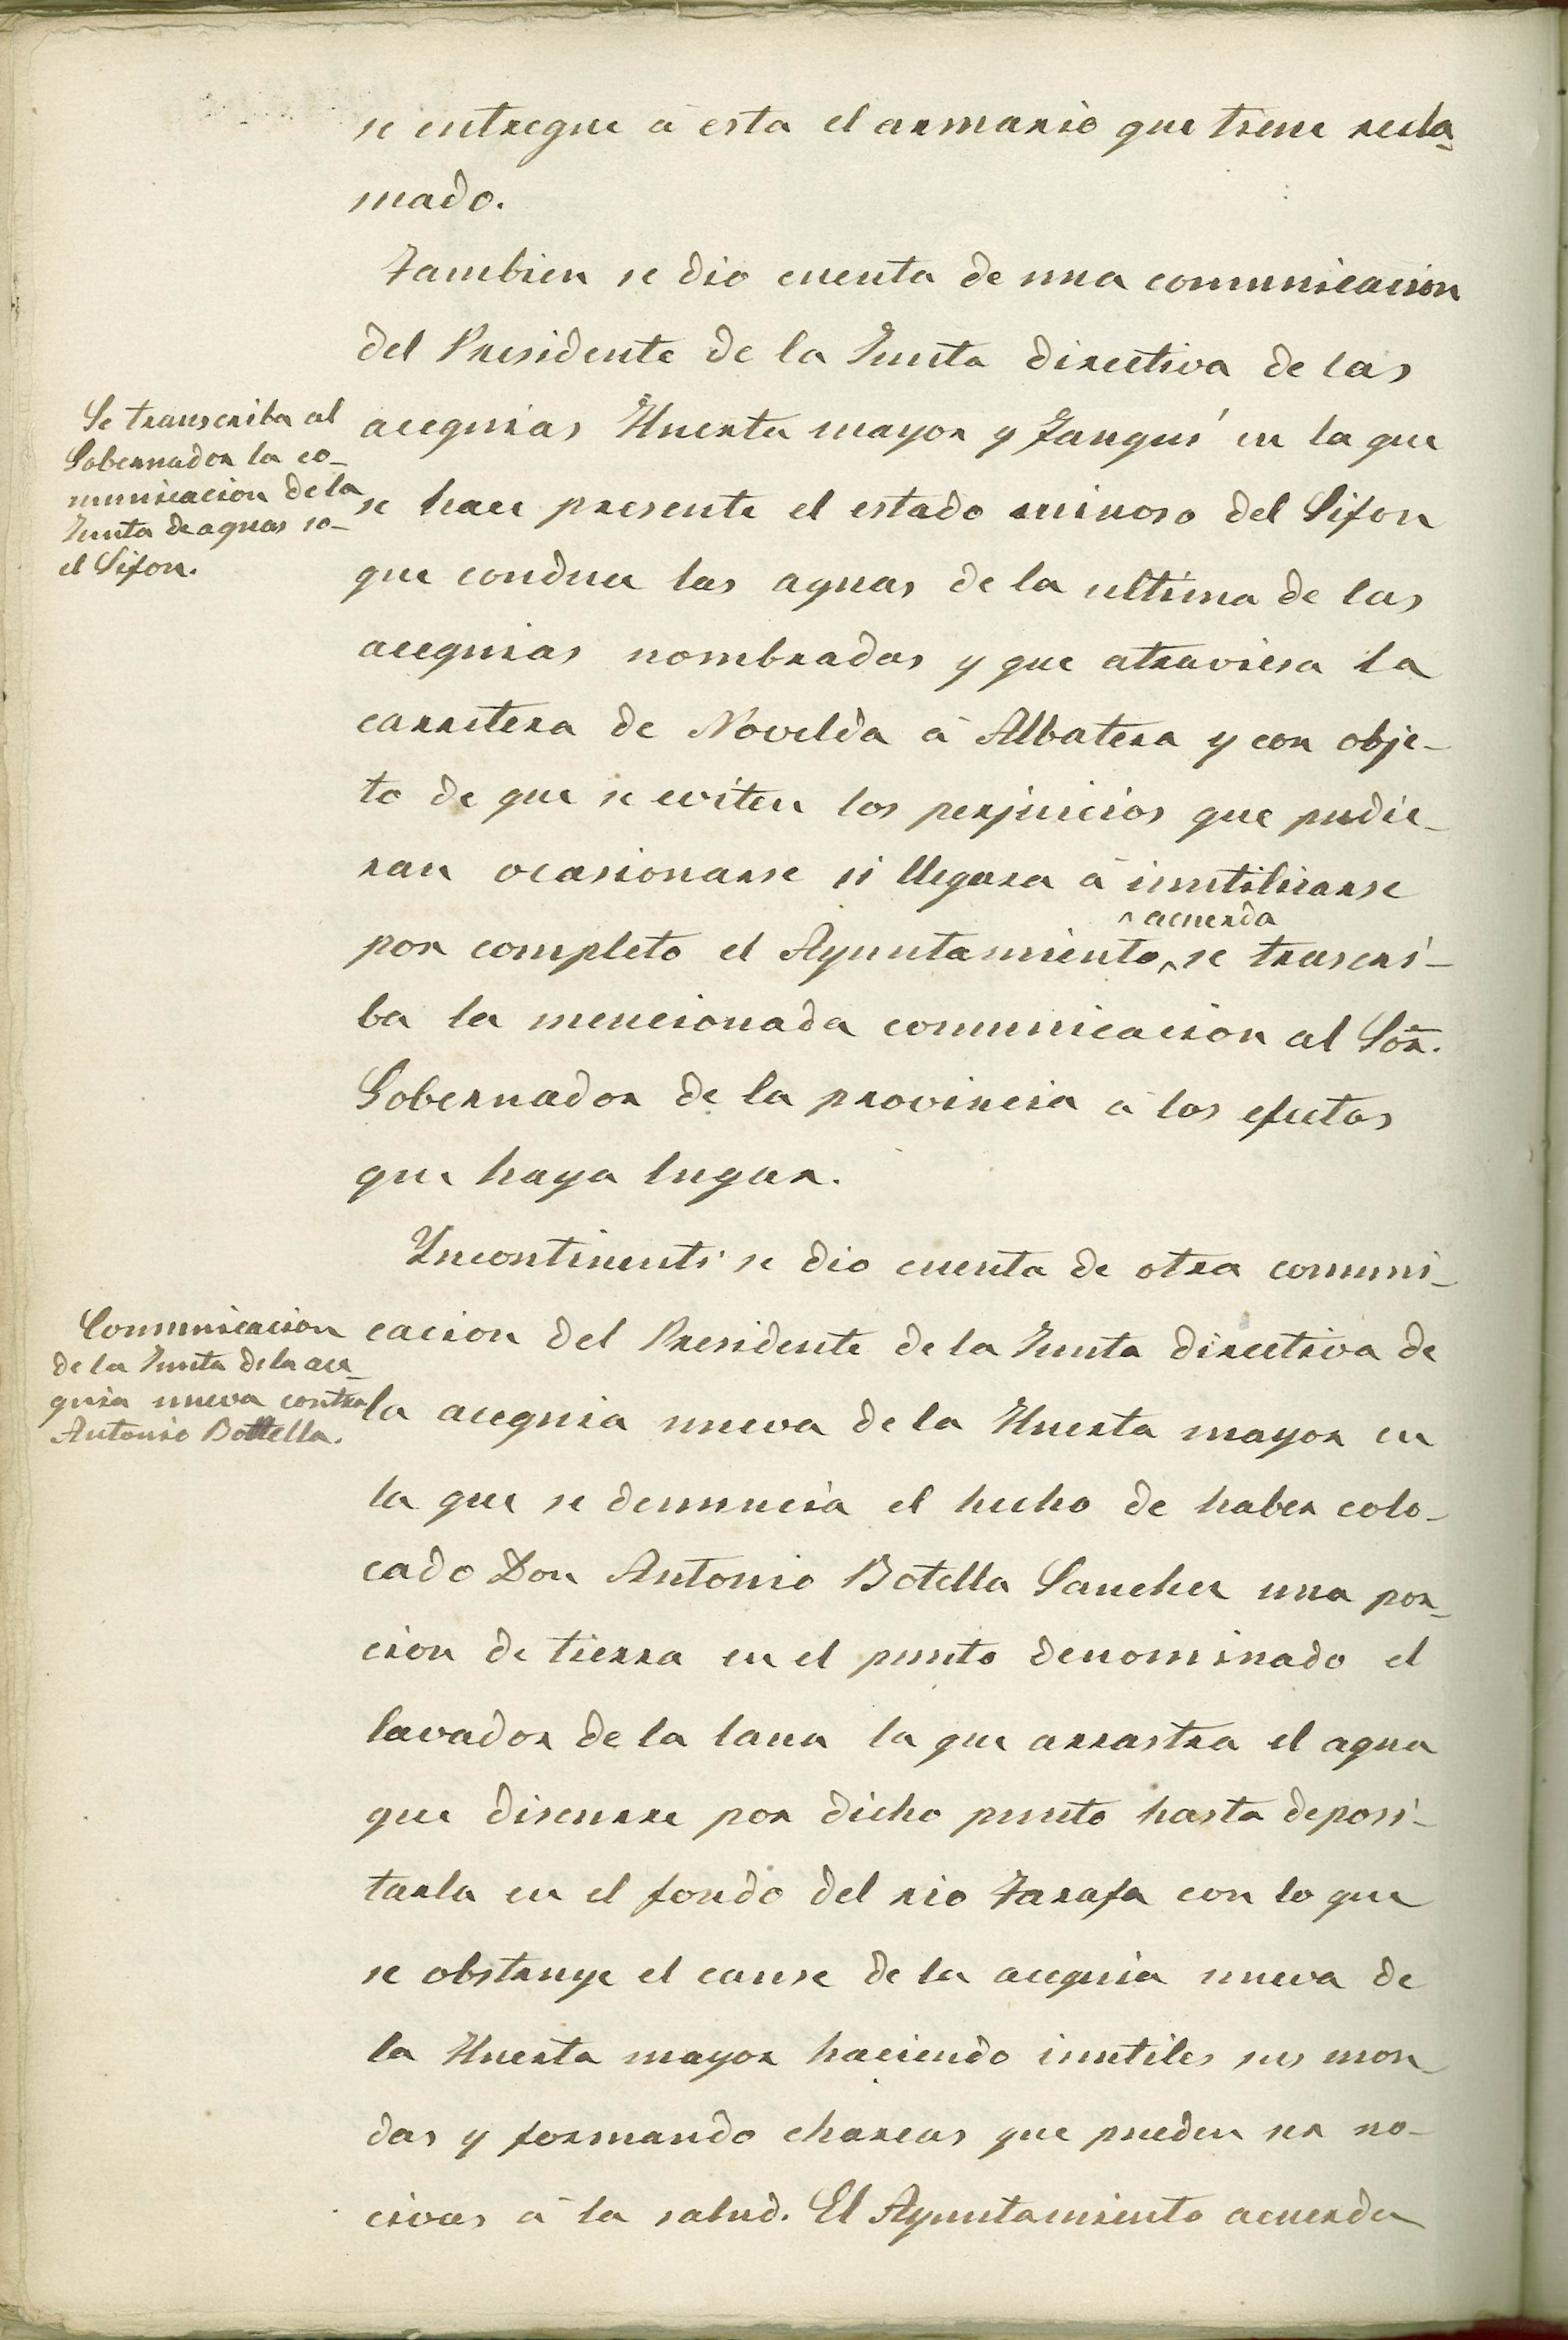 se entregue á esta el armario que tiene recla-
mado.
Tambien se dio cuenta de una comunicacion
del Presidente de la Junta directiva de las
Se transcriba al
Gobernador la co-
municacion de la
Junta de aguas so-
el Sifon.
acequias Huerta mayor y Fanqui en la que
se hace presente el estado ruinoso del Sifon
que conduce las aguas de la ultima de las
acequias nombradas y que atraviesa la
carretera de Novelda á Albatera y con obje-
to de que se eviten los perjuicios que pudie-
ran ocasionarse si llegara á inutilizarse
^ acuerda
por completo el Ayuntamiento ^ se trascri-
ba la mencionada comunicacion al Sor.
Gobernador de la provincia á los efectos
que haya lugar.
Yncontinenti se dio cuenta de otra comuni-
Comunicacion
de la Junta de la ace-
quia nueva contra
Antonio Bottella.
cacion del Presidente de la Junta directiva de
la acequia nueva de la Huerta mayor en
la que se denuncia el hecho de haber colo-
cado Don Antonio Botella Sanchez una por-
cion de tierra en el punto denominado el
lavador de la lana la que arrastra el agua
que discurre por dicho punto hasta deposi-
tarla en el fondo del rio Tarafa con lo que
se obstruye el cause de la acequia nueva de
la Huerta mayor haciendo inutiles sus mon-
das y formando charcas que pueden ser no-
civas á la salud. El Ayuntamiento acuerda